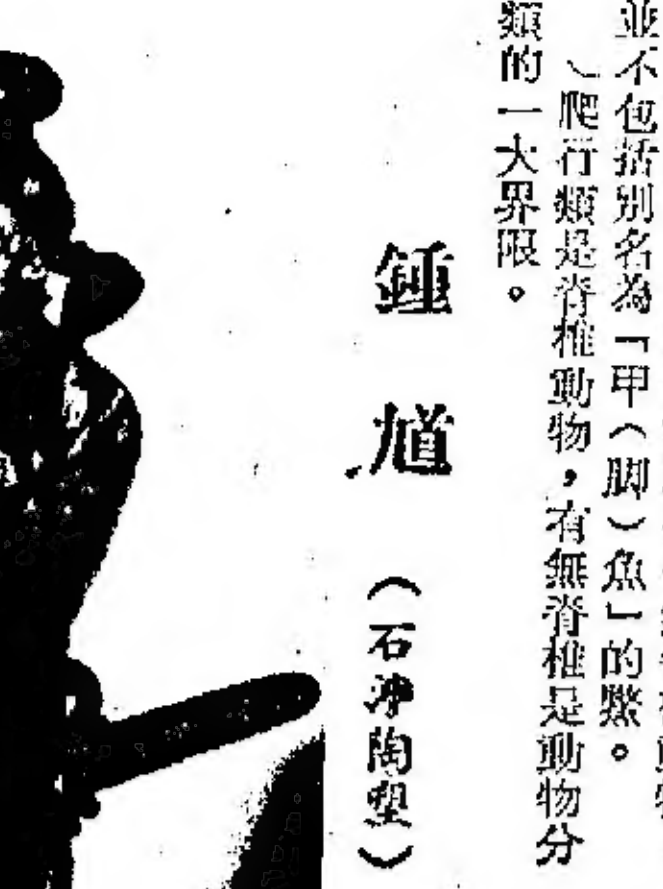 並不包括別名為「甲(脚)魚」的鱉。
)爬行類是脊椎動物,有無脊椎是動物分
類的一大界限。
鍾馗
(石沖陶塑)